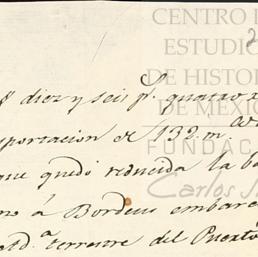 CENTRO
ESTUDIO
DE HISTO
DE MEXIC
FUNDAC
Carlos
diez y seis p.s quatro
portacion de 132. m.
que quedó reducida la
á Bordeus embar
terrestre del Puerto